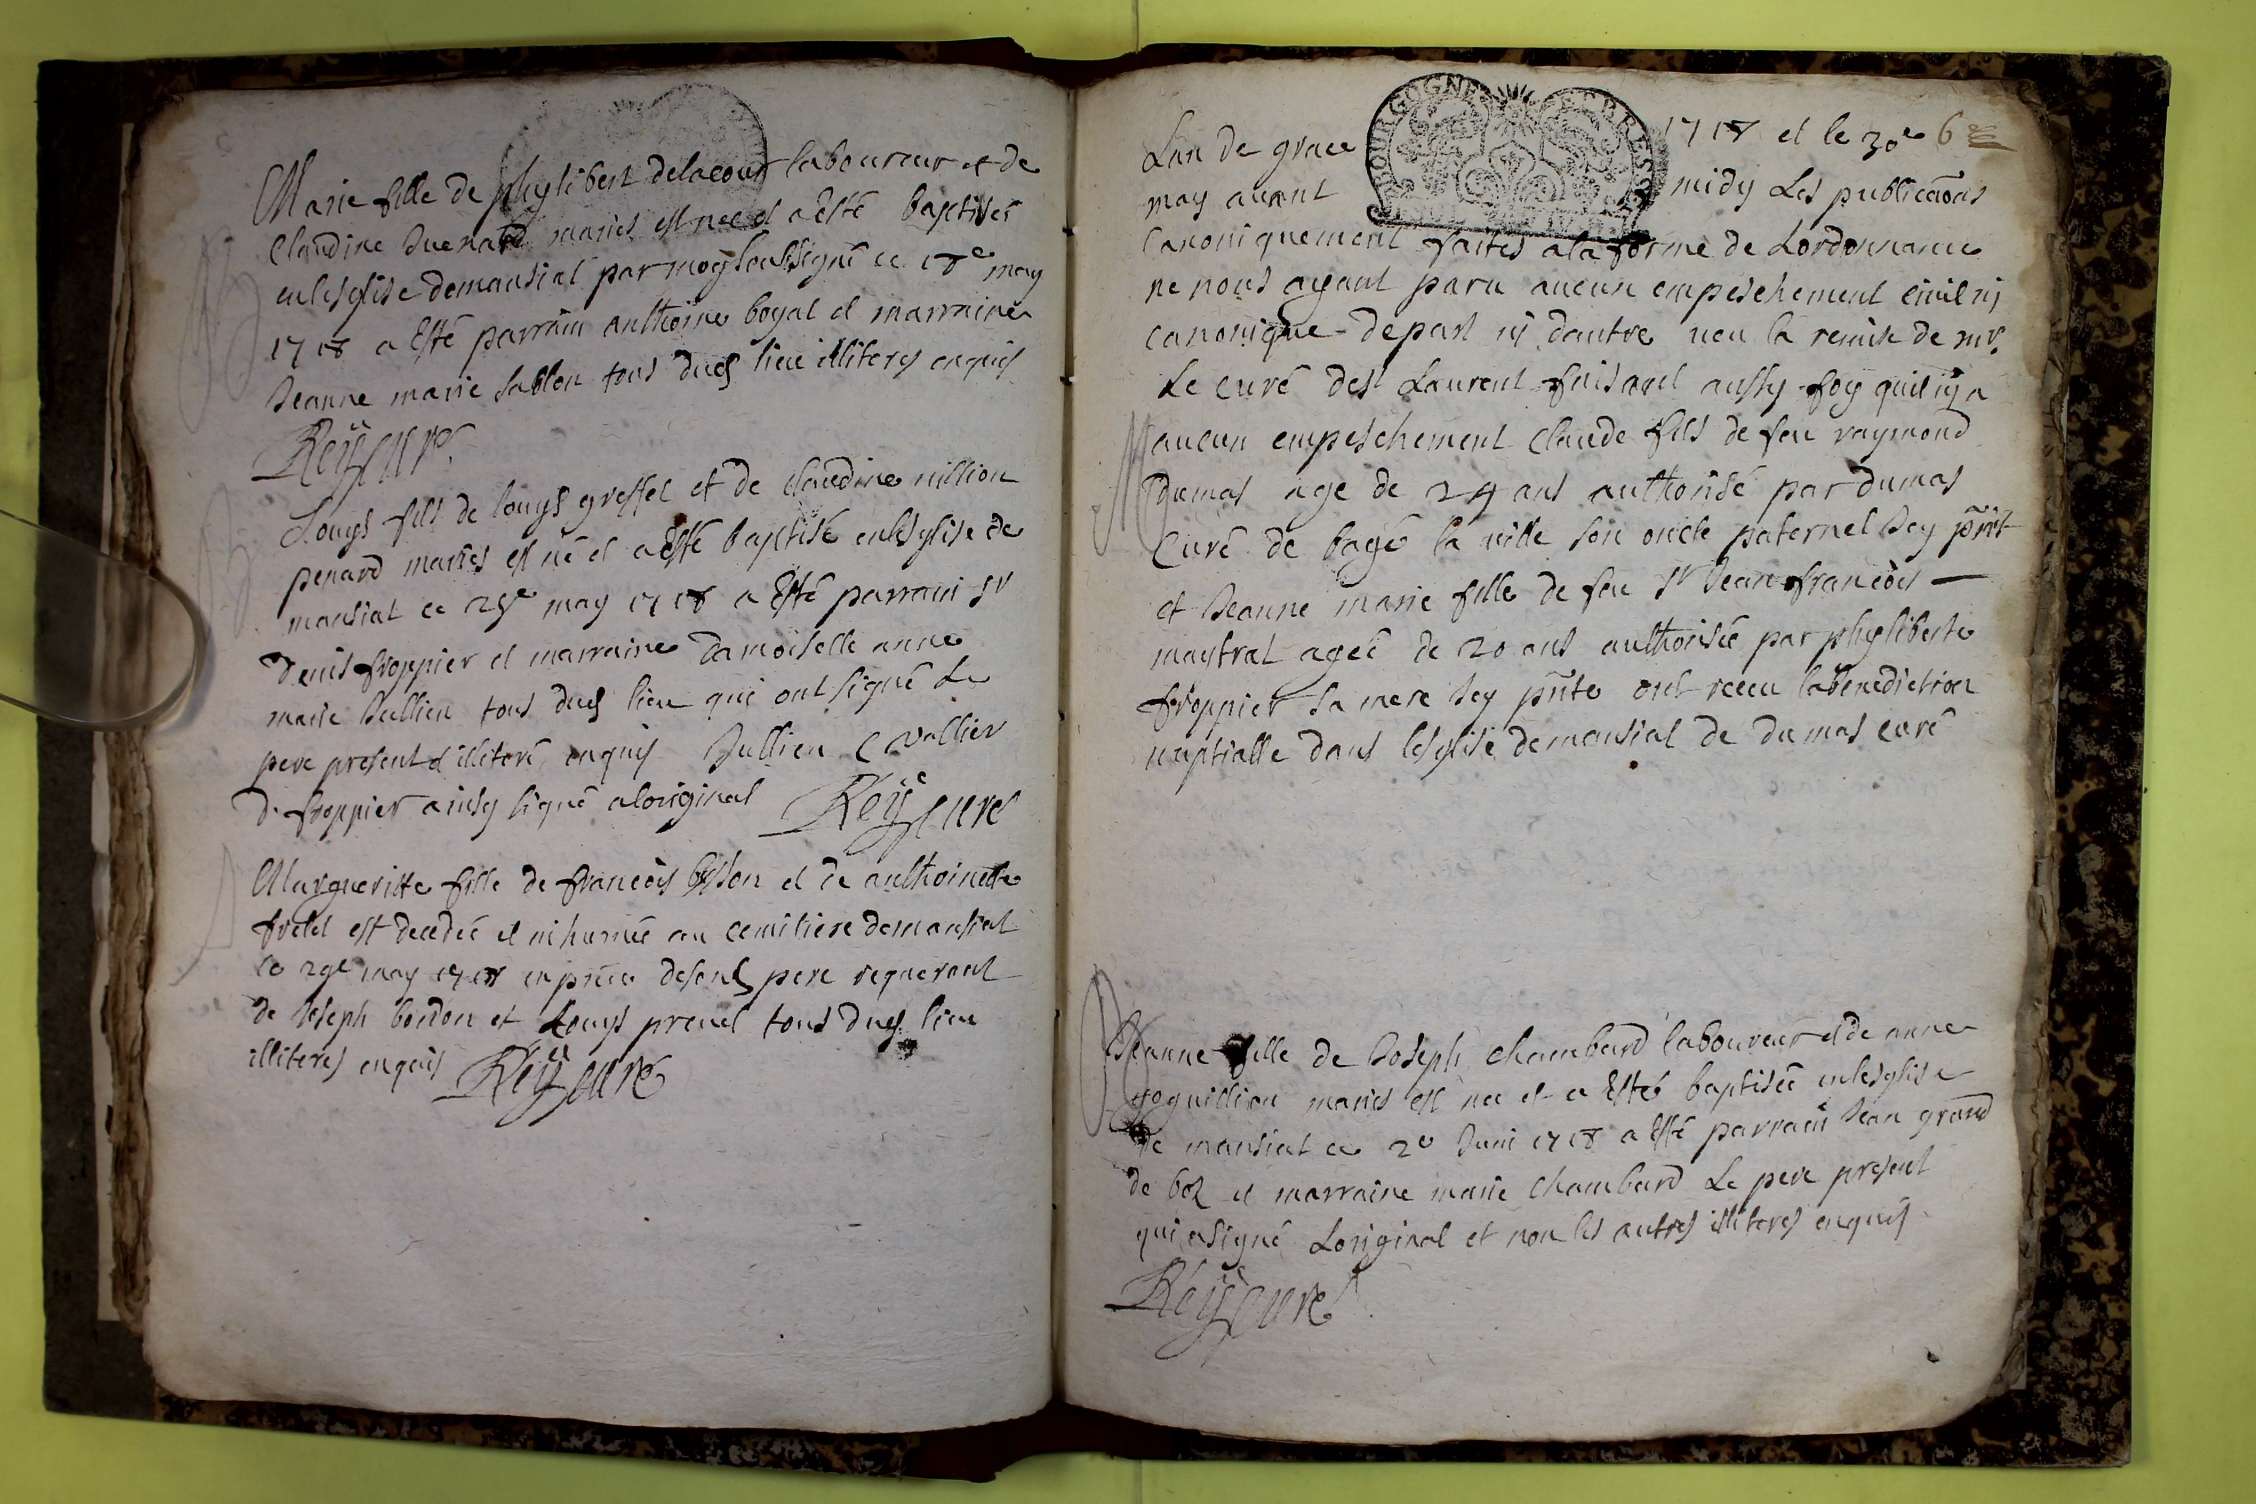 Marie fille de phylibert delacour laboureur et de
Claudine Duenard mariés est née et a esté baptisée
en lesglise de mansiat par moy soussigné ce 18e may
1718 a esté parrain anthoine boyat et marraine
Jeanne marie Sablon tous dud lieu illiteres enquis
Reÿ curé
Louys fils de louys greffet et de claudine million
penard mariés est né et a esté baptisé en lesglise de
mansiat ce 25e may 1718 a esté parrain sr
denis froppier et marraine damoiselle anne
marie Jullien tous dud lieu qui ont signé Le
pere present illiteré enquis Jullien C vallier
D froppier ainsy signé a loriginal Reÿ curé
Margueritte fille de françois et de anthoinette
est decedée et inhumée au cemitiere de mansiat
le 29e may 1718 en pnce desond pere requerant
de Joseph boidon et Louys prevel tous dud lieu
illiteres enquis Reÿ curé
BOURGOGNE ET BRESSE
Lan de grace 1718 et le 30e 6
may avant midy Les publicaõns
canoniquement faites a la forme de Lordonnance
ne nous ayant paru aucun empeschement civil ny
canonique de part ny dautre veu la remise de mr
Le curé de st Laurent faisant aussy foy quil ny a
aucun empeschement Claude fils de feu raymond
Dumas age de 24 ans authorisé par dumas
Curé de bagé la ville son oncle paternel Icy pnt
et Jeanne marie fille de feu sr Jean françois —
maytral agée de 20 ans authorisée par phyliberte
froppier sa mere Icy pnte ont receu la benediction
nuptialle dans lesglise de mansiat de dumas curé
Jeanne fille de Joseph Chambard laboureur et de anne
goguillion mariés est née et a esté baptisée en lesglise
de mansiat ce 2e Juin 1718 a esté parrain Jean grand
de boz et marraine marie Chambard Le pere present
qui a signé Loriginal et non les autres illiteres enquis
Reÿ curé